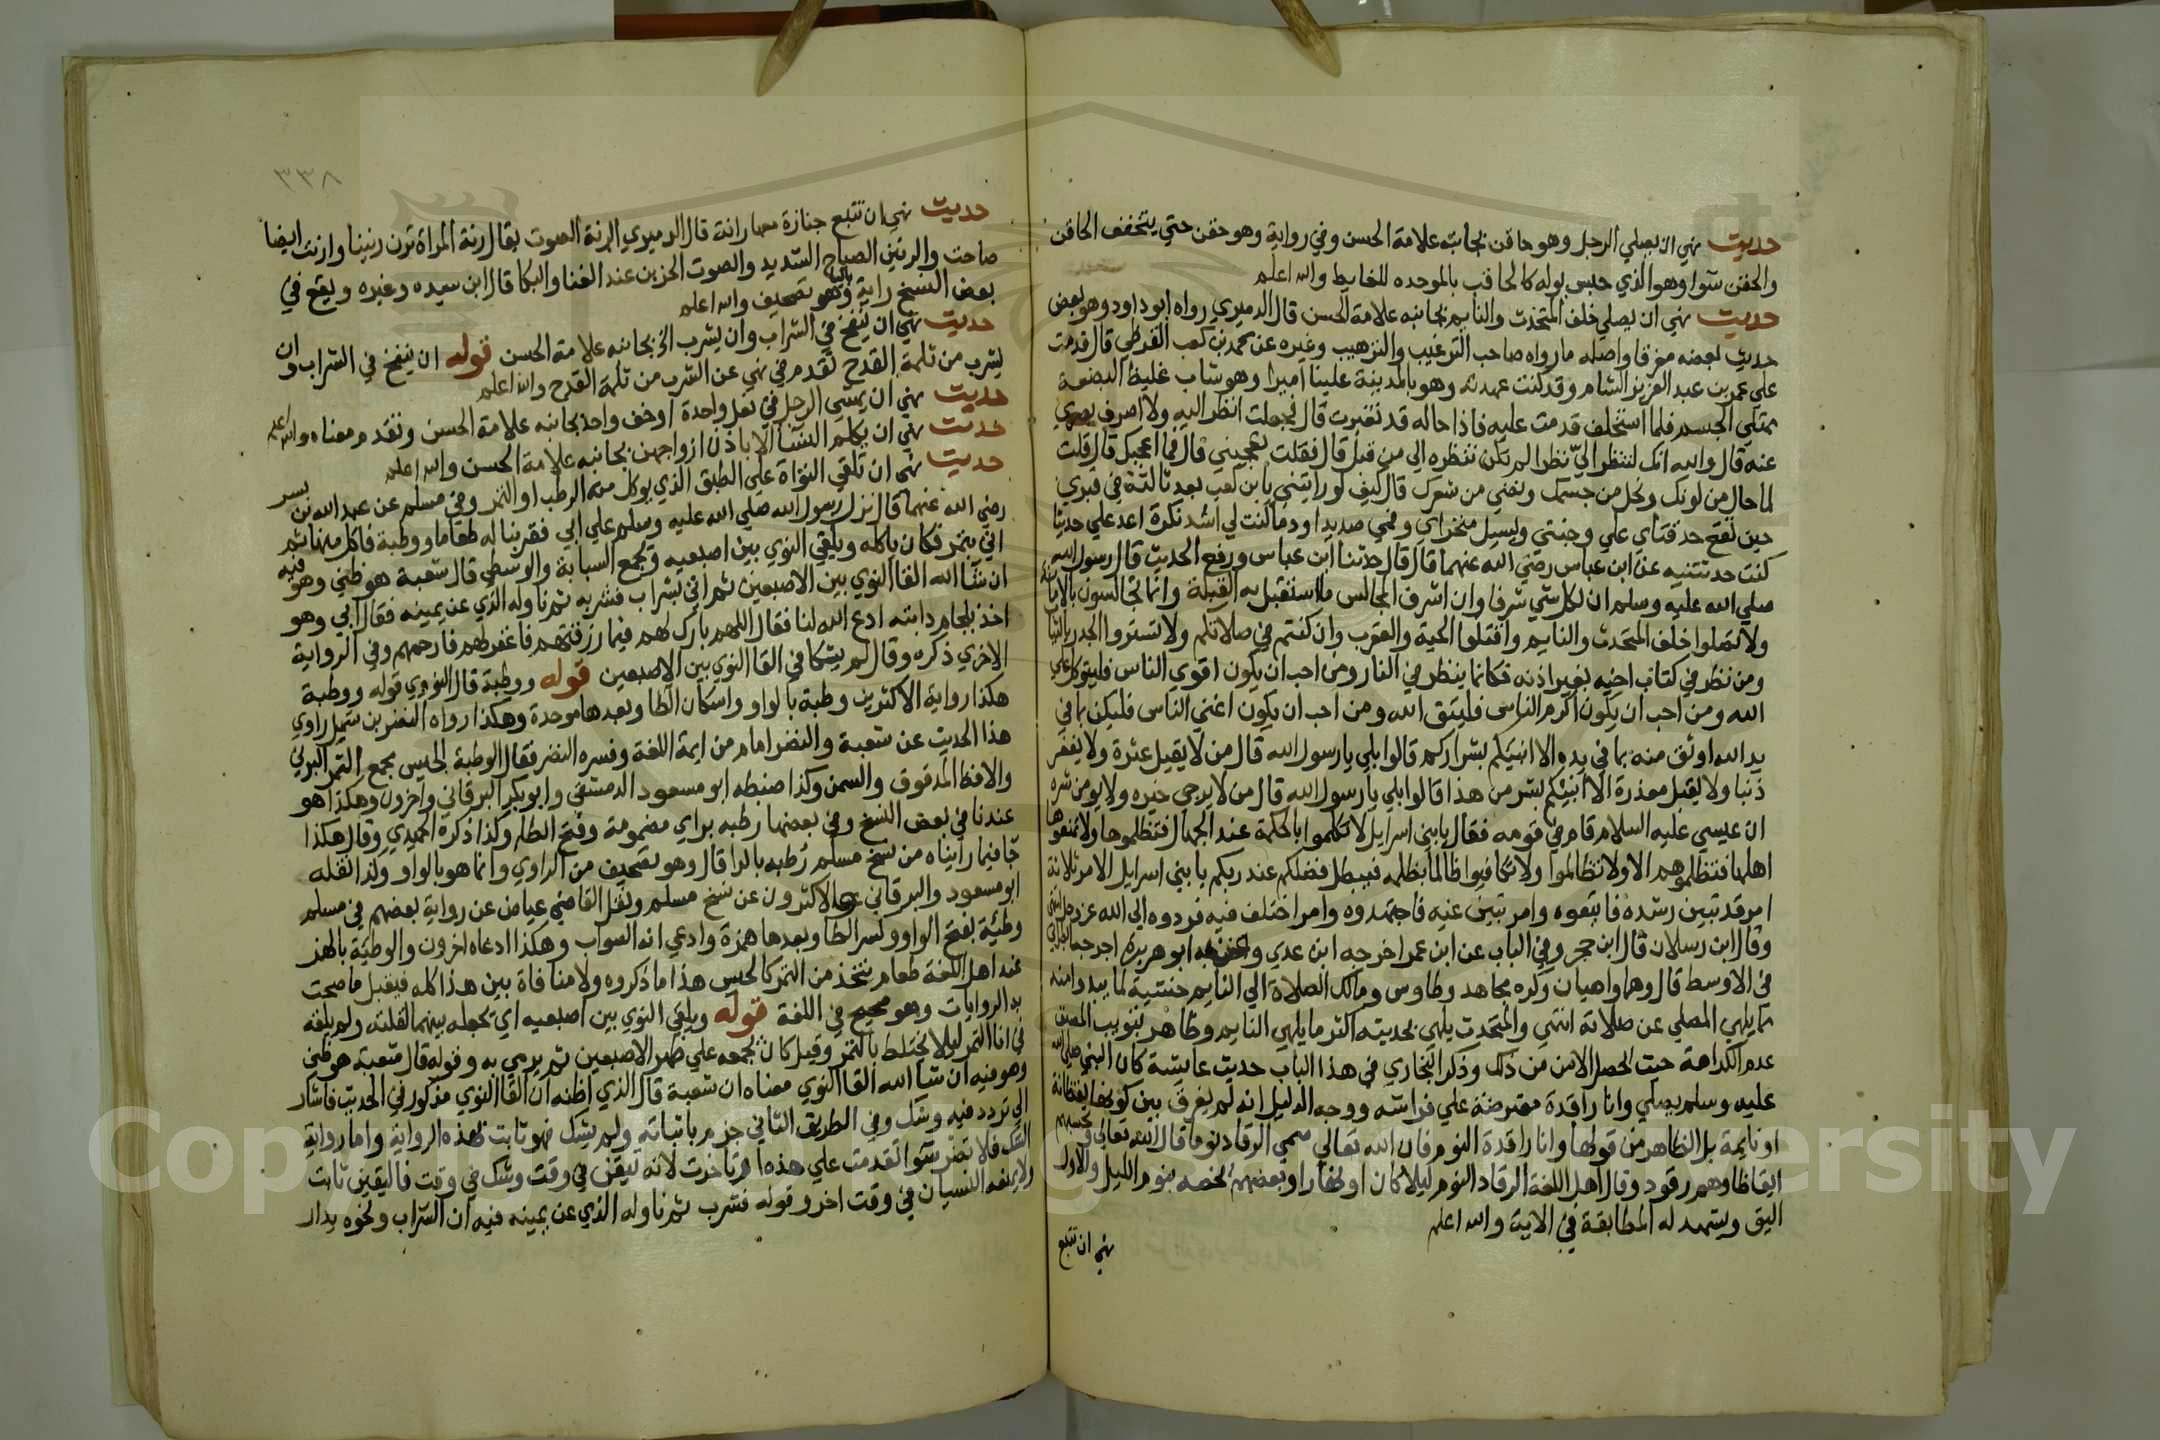 حديث نهي ان يصلي الرجل وهو حاقن بجانبه علامة الحسن وفي رواية وهو حقن حتي يتخفف الحاقن
والحقن سوا وهو الذي حبس بوله كالحاقب بالموحده للغايط والله اعلم
حديث نهي ان يصلي خلف المتحدث والنايم بجانبه علامة الحسن قال الدميري رواه ابو داود وهو بعض
حديث لبعضه مفرقا واصله ما رواه صاحب الترغيب والترهيب وغيره عن محمد بن كعب القرظي قال قدمت
علي عمر بن عبد العزيز الشام وقد كنت عهدته وهو بالمدينة علينا اميرا وهو شاب غليظ البضعة
ممتلي الجسم فلما استخلف قدمت عليه فاذا حاله قد تغيرت قال فجعلت انظر اليه ولا اصرف بصري
عنه قال والله انك لتنظر اليّ نظرا لم تكن تنظره الي من قبل قال فقلت تعجبني قال فما اعجبك قال قلت
لما حال من لونك ونحل من جسمك ونفي من شعرك قال كيف لو رايتني يا بن كعب بعد ثالثة في قبري
حين تقع حدقتاي علي وجنتي ويسيل منخراي وفمي صديدا ودما كنت لي اشد نكرة اعد علي حديثا
كنت حدثتنيه عن ابن عباس رضي الله عنهما قال قال حدثنا ابن عباس ورفع الحديث قال رسول الله
صلي الله عليه وسلم ان لكل شي شرفا وان اشرف المجالس ما استقبل به القبلة وانما تجالسون بالامانة
ولا تصلوا خلف المتحدث والنايم واقتلوا الحية والعقرب وان كنتم في صلاتكم ولا تستروا الجدر بالثياب
ومن نظر في كتاب اخيه بغير اذنه فكانما ينظر في النار ومن احب ان يكون اقوي الناس فليتوكل علي
الله ومن احب ان يكون اكرم الناس فليتق الله ومن احب ان يكون اغني الناس فليكن بما في
يد الله اوثق منه بما في يده الا انبيكم بشراركم قالوا بلي يا رسول الله قال من لا يقيل عثرة ولا يغفر
ذنبا ولا يقبل معذرة الا انبيكم بشر من هذا قالوا بلي يا رسول الله قال من لا يرجي خيره ولا يومن شره
ان عيسي عليه السلام قام في قومه فقال يا بني اسرايل لا تكلموا بالحكمة عند الجهال فتظلموها ولا تمنعوها
اهلها فتظلموهم الا ولا تظالموا ولا تكافيوا ظالما بظلمه فيبطل فضلكم عند ربكم يا بني اسرايل الامر ثلاثة
امر قد تبين رشده فاتبعوه وامر تبين غيه فاجتنبوه وامر اختلف فيه فردوه الي الله عز وجل انتهي
وقال ابن رسلان قال ابن حجر وفي الباب عن ابن عمر اخرجه ابن عدي وعن ابو هريره اخرجه الطبراني
في الاوسط قال وهما واهيان وكره مجاهد وطاوس ومالك الصلاة الي النايم خشية لما يبدو منه
مما يلهي المصلي عن صلاته انتهي والمتحدث يلهي بحديثه اكثر ما يلهي النايم وظاهر تبويب المصنف
عدم الكراهة حيث لحصل الامن من ذلك وذكر البخاري في هذا الباب حديث عايشة كان النبي صلي الله
عليه وسلم يصلي وانا راقدة معترضة علي فراشه ووجه الدليل انه لم يفرق بين كونها يقظانة
او نايمة بل الظاهر من قولها وانا راقدة النوم فان الله تعالي سمي الرقاد نوما قال الله تعالي وتحسبهم
ايقاظا وهم رقود وقال اهل اللغة الرقاد النوم ليلا كان او نهارا وبعضهم يخصه بنوم الليل والاول
اليق ويشهد له المطابقة في الاية والله اعلم
نهي ان تتبع
٣٣٨
حديث نهي ان تتبع جنازة معها رانة قال الدميري الرنة الصوت يقال رنة المراة ترن رنينا وارنت ايضا
صاحت والرنين الصياح الشديد والصوت الحزين عند الغنا والبكا قال ابن سيده وغيره ويقع في
بعض النسخ راية باليا وهو تصحيف والله اعلم
حديث نهي ان ينفخ في الشراب وان يشرب الخ بجانبه علامة الحسن قوله ان ينفخ في الشراب وان
يشرب من ثلمة القدح تقدم في نهي عن الشرب من ثلمة القدح والله اعلم
حديث نهي ان يمشي الرجل في نعل واحدة او خف واحد بجانبه علامة الحسن وتقدم معناه والله اعلم
حديث نهي ان يكلم النسا الا باذن ازواجهن بجانبه علامة الحسن والله اعلم
حديث نهي ان تلقي النواة علي الطبق الذي يوكل منه الرطب او التمر وفي مسلم عن عبد الله بن بسر
رضي الله عنهما قال نزل رسول الله صلي الله عليه وسلم علي ابي فقربنا له طعاما ووطبة فاكل منها ثم
اتي بتمر فكان ياكله ويلقي النوي بين اصبعيه ويجمع السبابة والوسطي قال شعبة هو ظني وهو فيه
ان شا الله القا النوي بين الاصبعين ثم اتي بشراب فشربه ثم ناوله الذي عن يمينه فقال ابي وهو
اخذ بلجام دابته ادع الله لنا فقال اللهم بارك لهم فيما رزقتهم فاغفر لهم فارحمهم وفي الرواية
الاخري ذكره وقال لم يشكا في القا النوي بين الاصبعين قوله ووطبة قال النووي قوله ووطبة
هكذا رواية الاكثرين وطبة بالواو واسكان الطا وبعدها موحدة وهكذا رواه النضر بن شميل راوي
هذا الحديث عن شعبة والنضر امام من ايمة اللغة وفسره النضر فقال الوطبة الحيس بجمع التمر البرني
والاقط المدقوق والسمن وكذا ضبطه ابو مسعود الدمشقي وابو بكر البرقاني واخرون وهكذا هو
عندنا في بعض النسخ وفي بعضها رطبه براي مضمومة وفتح الطا وكذا ذكره الحميدي وقال هكذا
جا فيما رايناه من نسخ مسلم رُطبه بالرا قال وهو تصحيف من الراوي وانما هو بالواو وكذا نقله
ابو مسعود والبرقاني والاكثرون عن نسخ مسلم ونقل القاضي عياض عن رواية بعضهم في مسلم
وطئية بفتح الواو وكسر الطا وبعدها همزة وادعي انه الصواب وهكذا ادعاه اخرون والوطية بالهمز
عند اهل اللغة طعام يتخذ من التمر كالحيس هذا ما ذكروه ولا منافاة بين هذا كله فيقبل ما صحت
به الروايات وهو صحيح في اللغة قوله ويلقي النوي بين اصبعيه اي يجعله بينهما لقلته ولم يلقه
في انا التمر ليلا يختلط بالتمر وقيل كان يجمعه علي ظهر الاصبعين ثم يرمي به وقوله قال شعبة هو ظني
وهو فيه ان شا الله القا النوي معناه ان شعبة قال الذي اظنه ان القا النوي مذكور في الحديث فاشار
الي تردد فيه وشك وفي الطريق الثاني جزم باثباته ولم يشك فهو ثابت بهذه الرواية واما رواية
الشك فلا تضر سوا تقدمت علي هذه ام تاخرت لانه تيقن في وقت وشك في وقت فاليقين ثابت
ولا يمنعه النسيان في وقت اخر وقوله فشرب ثم ناوله الذي عن يمينه فيه ان الشراب ونحوه يدار